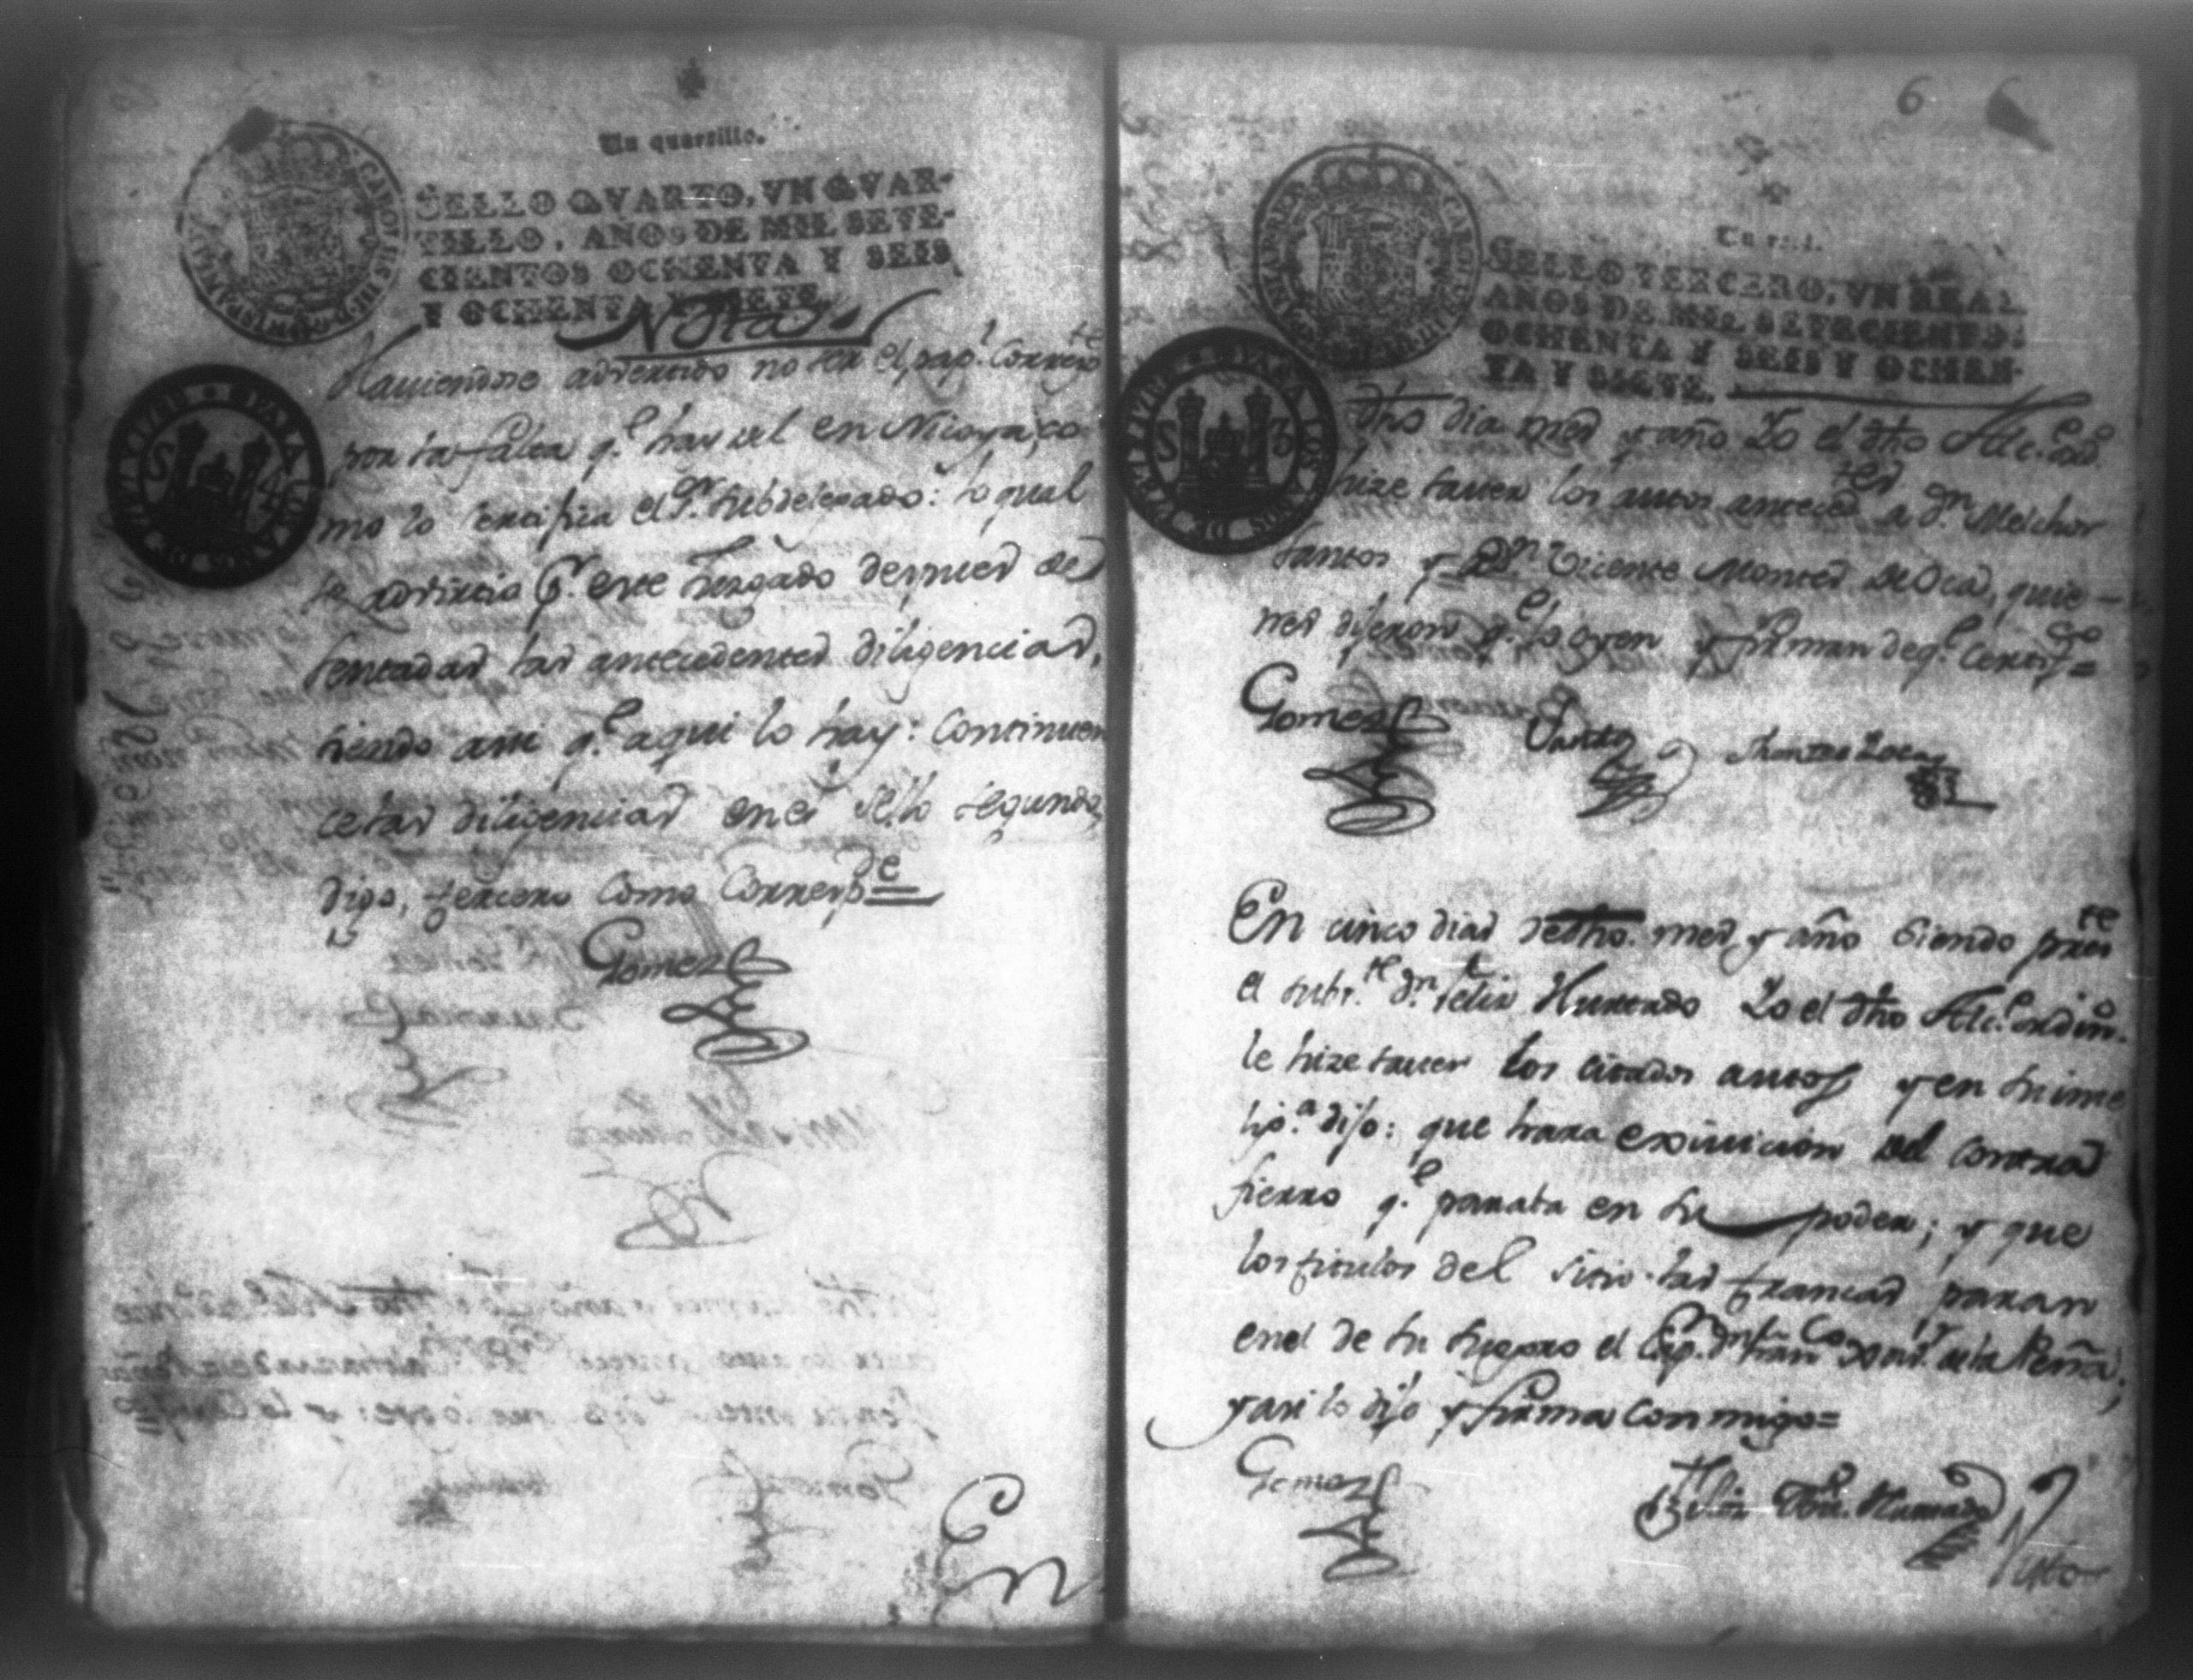 Un quartillo.
SELLO QVARTO, VN QVAR-
TILLO, AÑOS DE MIL SETE-
CIENTOS OCHENTA Y SEIS
Y OCHENTA Y SIETE.
Nota
Haviendose advertido no ser el pap.l Corresp.te
por la falta q.e hay del en Nicoya, co
mo lo certifica el S.or Subdelegado: lo qual
se advirtio p.r este Juzgado despues de
sentadas las antecedentes diligencias,
siendo assi q.e aqui lo hay: Continuen
ce las diligencias en el sello segundo,
digo, tercero como Corresp.de =
Gomez
En
6
Un real.
SELLO TERCERO, VN REAL
AÑOS DE MIL SETECIENTOS
OCHENTA Y SEIS Y OCHEN-
TA Y SIETE.
dho dia mes y año Yo el dho Alc.e ord.o
hize saver los autos anteced.tes a d.n Melchor
Santos y D.n Vicente Montes de Oca, quie-
nes dijeron q.e lo oyen y firman de q.e Certif.co =
Gomez Santos Montes Doca
En cinco dias de dho. mes y año siendo pres.te
el subt.te d.n Felix Hurtado Yo el dho Alc.e ordin.o
le hize saver los citados autos y en su inte
lig.a dijo: que hara exivicion del contra
fierro q.e paraba en su poder; y que
los titulos del sitio las trancas paran
en el de su suegro el Cap.n d.n Fran.co de la Peña;
y asi lo dijo y firma Conmigo =
Gomez Felix Hurtado
Auto